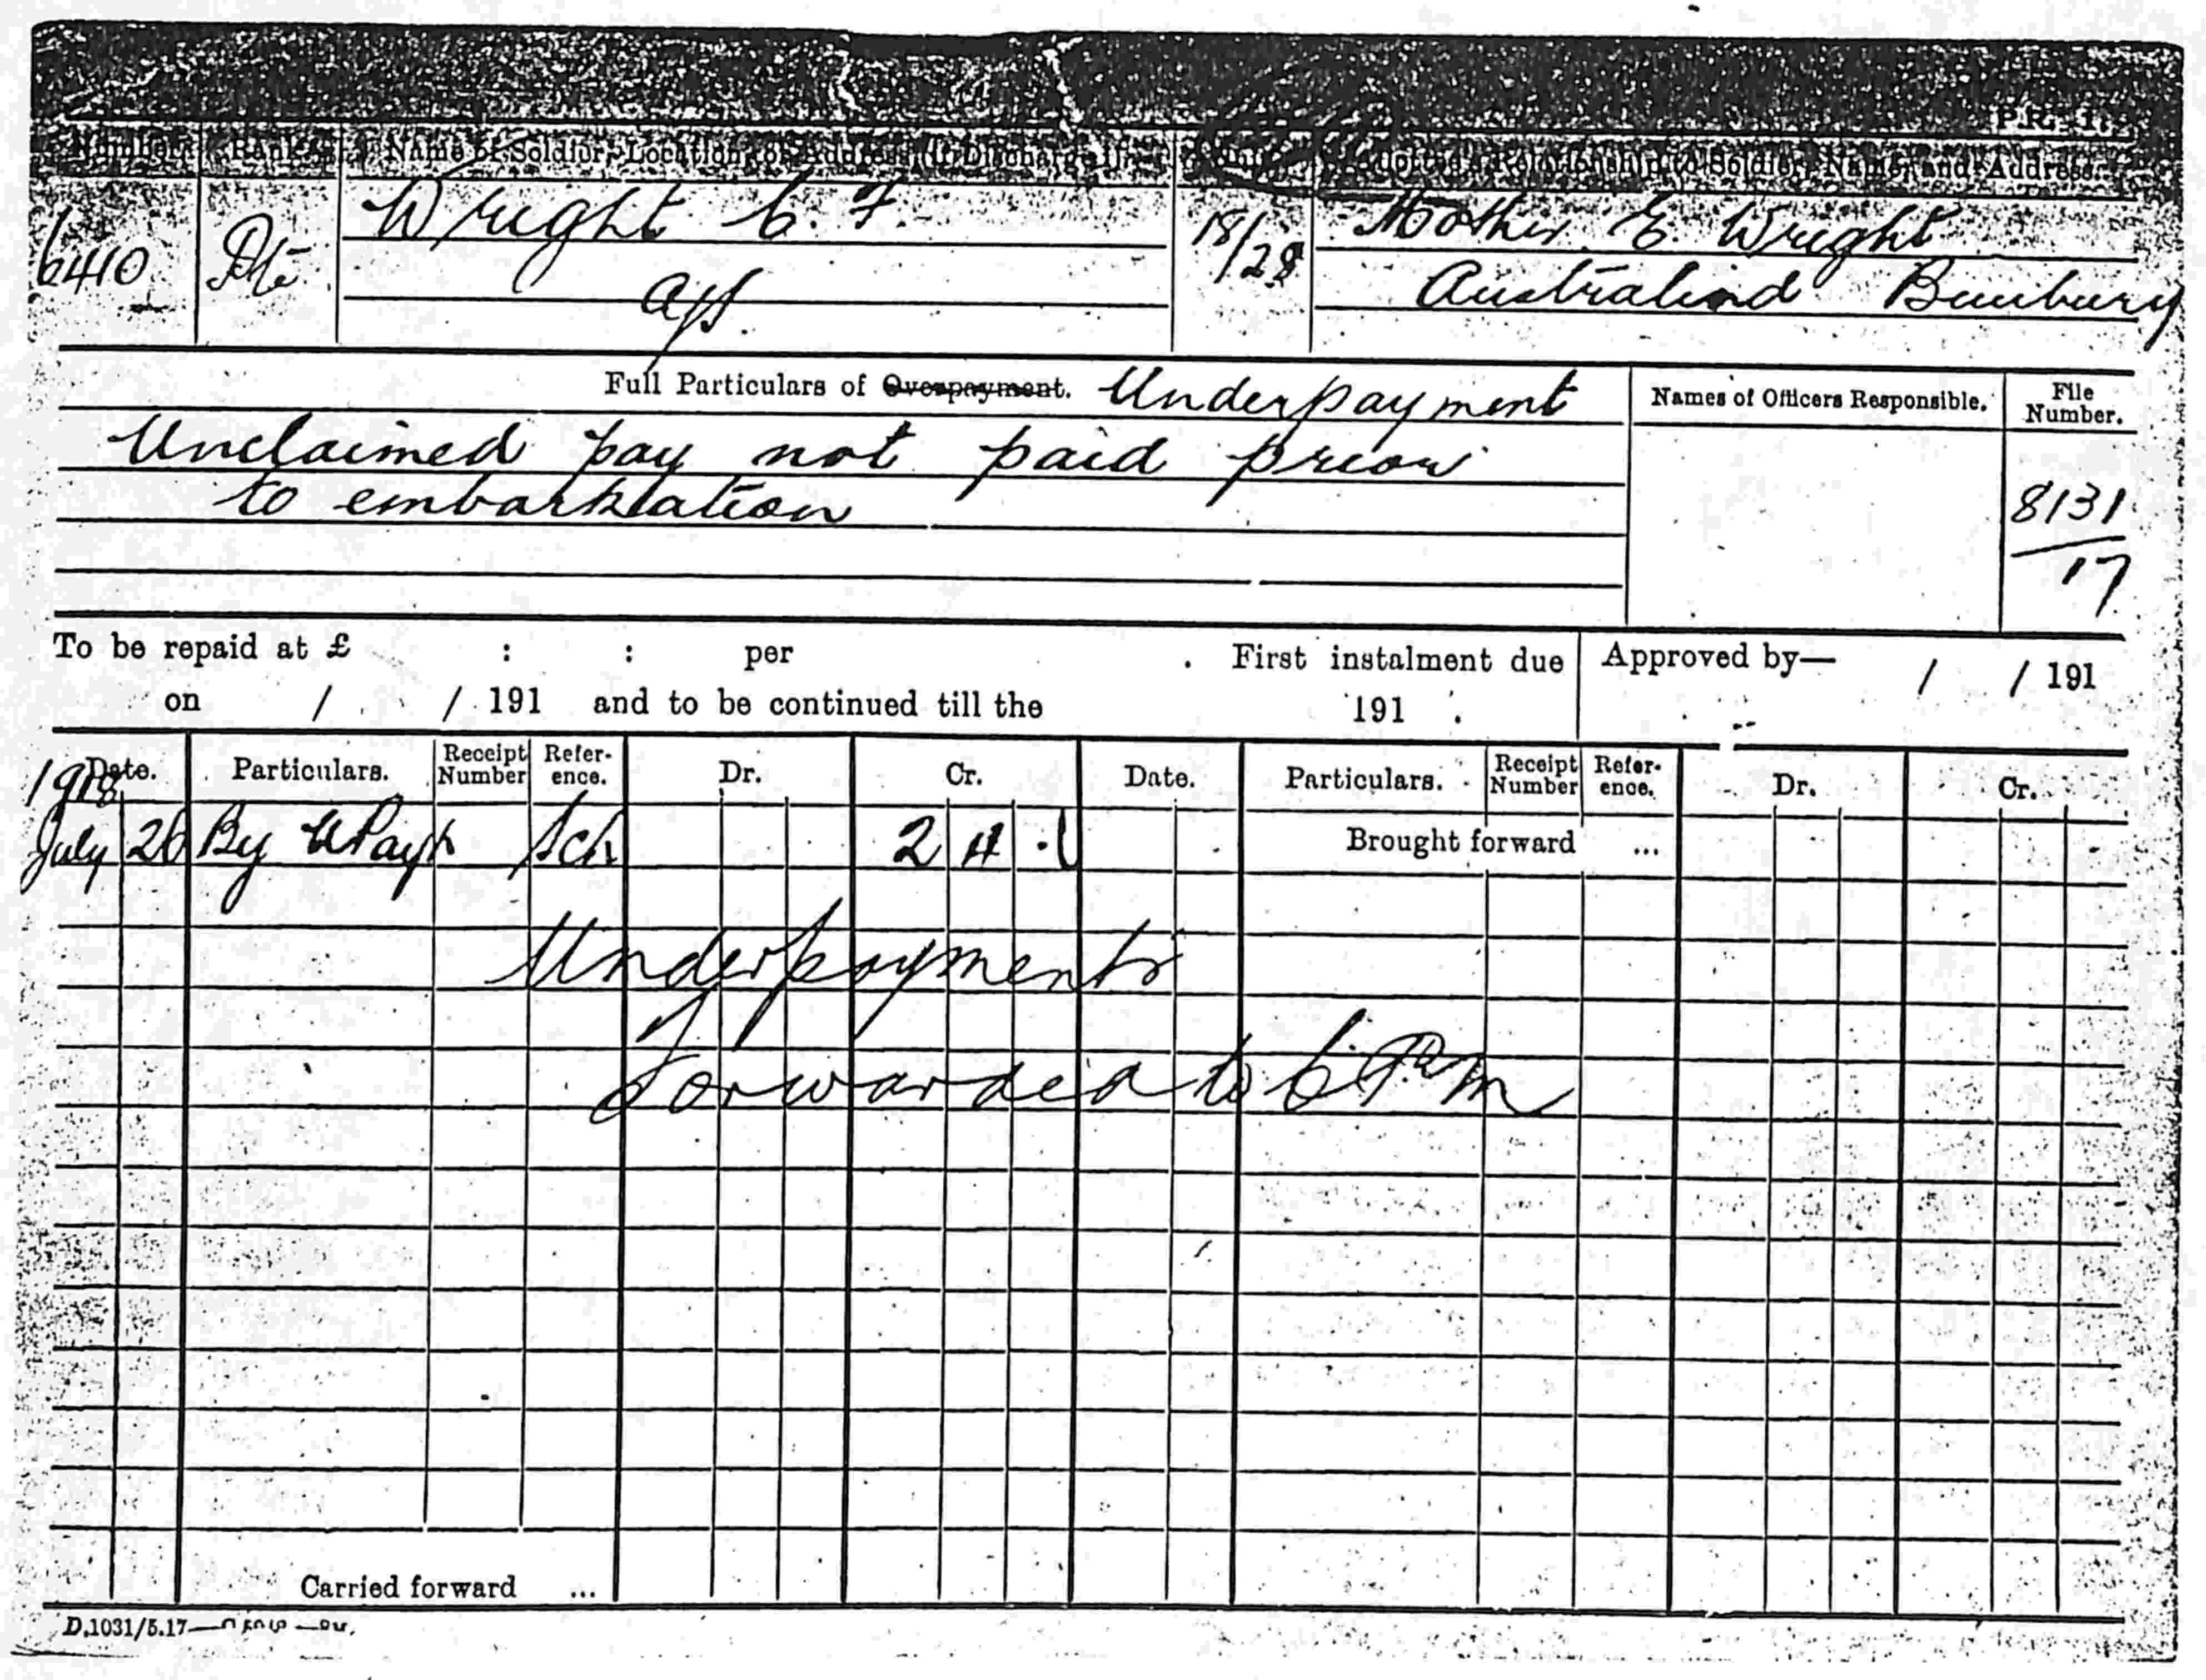 P.R. 1.
Number Rank Name of Soldier, Location, or Address (if Discharged). Unit Relationship to Soldier, Name, and Address.
6410 Pte Wright C. F. 18/28 Mother E. Wright
a/s. Australind Bunbury
Full Particulars of Overpayment. Underpayment Names of Officers Responsible. File Number.
Unclaimed pay not paid prior
to embarkation 8131/17
To be repaid at £ : : per . First instalment due Approved by— / / 191
on / / 191 and to be continued till the 191 .
Date. Particulars. Receipt Number Reference. Dr. Cr. Date. Particulars. Receipt Number Reference. Dr. Cr.
1918
July 26 By UPay Sch 2 4 Brought forward ...
Underpayments
Forwarded to C.P.M
Carried forward ...
D.1031/5.17—